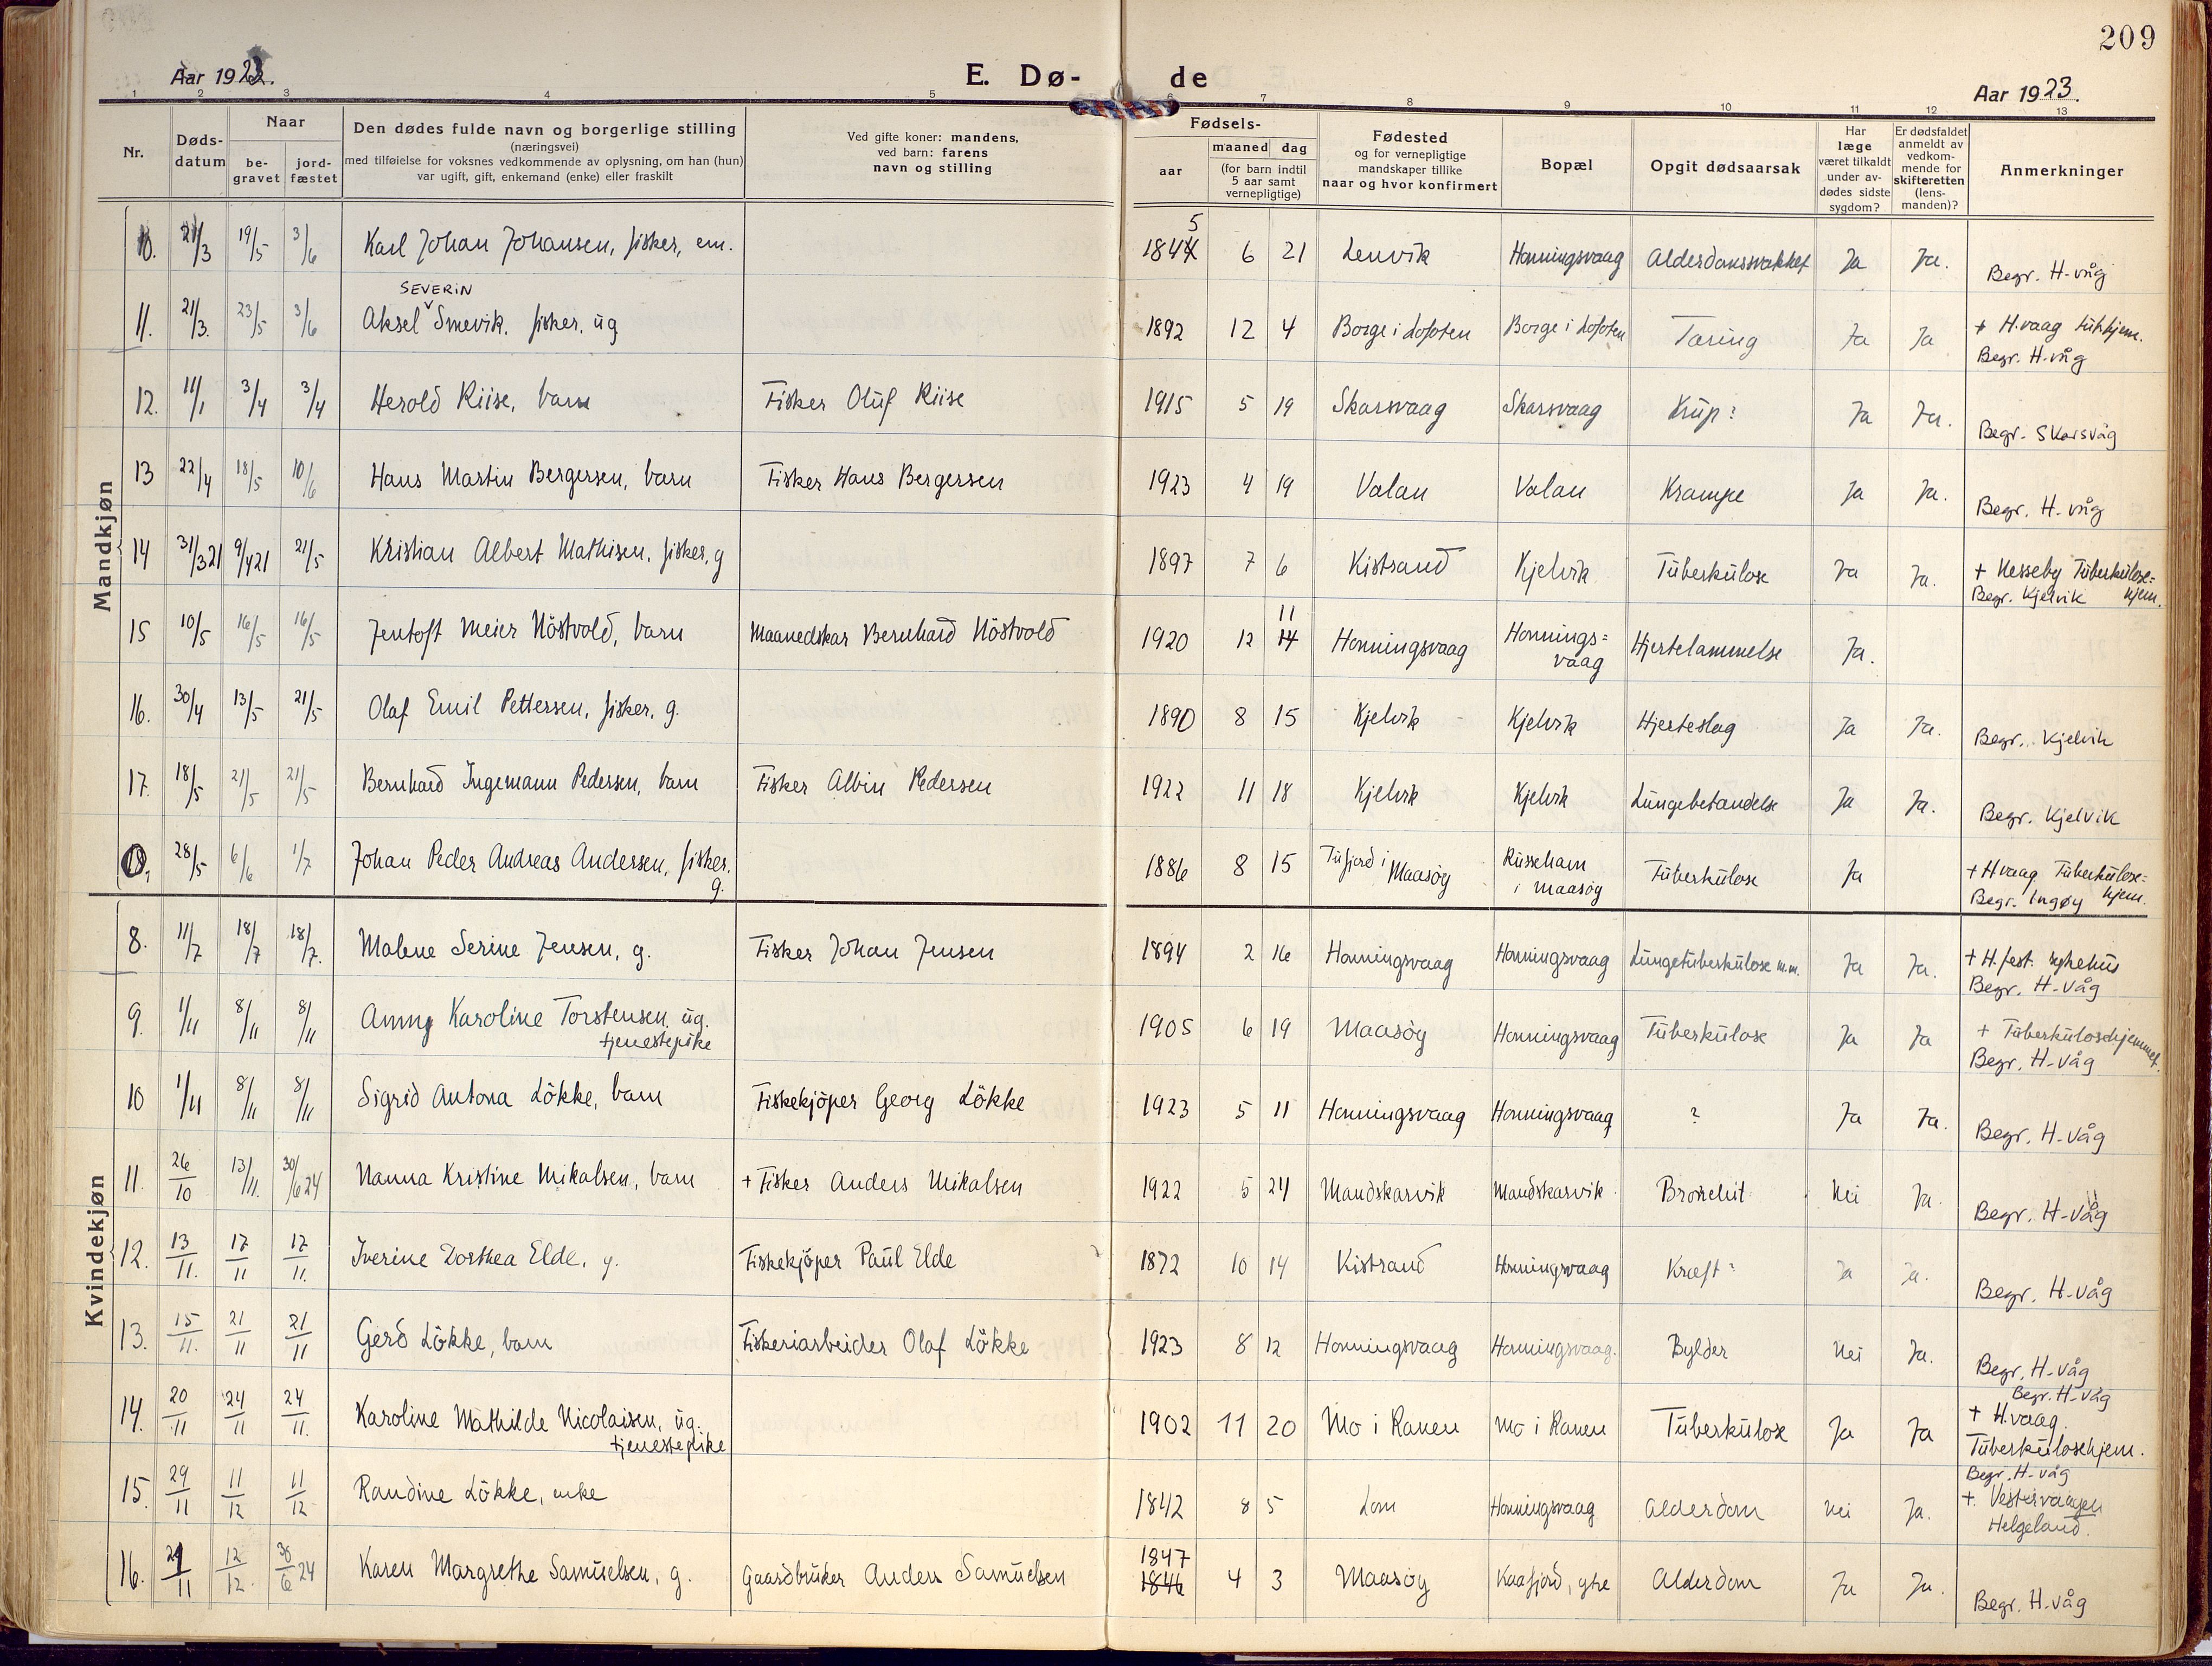 209
Aar 1923.
E. Dø-
de
Aar 1923.
1 2 3 4 5 6 7 8 9 10 11 12 13
Nr.
Døds-
datum
Naar
be-
gravet
jord-
fæstet
Den dødes fulde navn og borgerlige stilling
(næringsvei)
med tilføielse for voksnes vedkommende av oplysning, om han (hun)
var ugift, gift, enkemand (enke) eller fraskilt
Ved gifte koner: mandens,
ved barn: farens
navn og stilling
Fødsels-
aar
maaned dag
(for barn indtil
5 aar samt
vernepligtige)
Fødested
og for vernepligtige
mandskaper tillike
naar og hvor konfirmert
Bopæl
Opgit dødsaarsak
Har
læge
været tilkaldt
under av-
dødes sidste
sygdom?
Er dødsfaldet
anmeldt av
vedkom-
mende for
skifteretten
(lens-
manden)?
Anmerkninger
Mandkjøn
10. 21/3 19/5 3/6 Karl Johan Johansen, fisker, em. 1844 5 6 21 Lenvik Honningsvaag Alderdomssvakhet Ja Ja. Begr. H-våg
SEVERIN
11. 21/3. 23/5 3/6 Aksel Smevik. fisker. ug 1892 12 4 Borge i Lofoten Borge i Lofoten Tæring Ja Ja + H.vaag tub.hjem.
Begr. H-våg
12. 11/1 3/4 3/4 Herold Riise, barn Fisker Oluf Riise 1915 5 19 Skarsvaag Skarsvaag Krup? Ja Ja. Begr. Skarsvåg
13 22/4 18/5 10/6 Hans Martin Bergersen, barn Fisker Hans Bergersen 1923 4 19 Valan Valan Krampe Ja Ja. Begr. H-våg
14 31/3 21 9/4 21 21/5 Kristian Albert Mathisen, fisker, g 1897 7 6 Kistrand Kjelvik Tuberkulose Ja Ja. + Nesseby Tuberkulose=
hjem.
Begr. Kjelvik
15 10/5 16/5 16/5 Jentoft Meier Nöstvold, barn Maanedskar Bernhard Nöstvold 1920 12 14 11 Honningsvaag Honnings=
vaag Hjertelammelse Ja.
16. 30/4 13/5 21/5 Olaf Emil Pettersen, fisker, g. 1890 8 15 Kjelvik Kjelvik Hjerteslag Ja Ja. Begr. Kjelvik
17. 18/5 21/5 21/5 Bernhard Ingemann Pedersen, barn Fisker Albin Pedersen 1922 11 18 Kjelvik Kjelvik Lungebetændelse Ja Ja. Begr. Kjelvik
18. 28/5 6/6 1/7 Johan Peder Andreas Andersen, fisker.
g. 1886 8 15 Tufjord i Maasöy Russeham
i Maasöy Tuberkulose Ja + Hvaag Tuberkulose=
hjem.
Begr. Ingøy
Kvindekjøn
8. 11/7 18/7 18/7. Malene Serine Jensen, g. Fisker Johan Jensen 1894 2 16 Honningsvaag Honningsvaag Lungetuberkulose m.m. Ja Ja. + H.fest. sykehus
Begr. H-våg
9. 1/11 8/11 8/11 Anny Karoline Torstensen, ug.
tjenestepike 1905 6 19 Maasöy Honningsvaag Tuberkulose Ja Ja + Tuberkulosehjemmet.
Begr. H-våg
10 1/11 8/11 8/11 Sigrid Antona Lökke, barn Fiskekjöper Georg Lökke 1923 5 11 Honningsvaag Honningsvaag ? Ja Ja. Begr. H-våg
11. 26/10 13/11. 30/6 24 Nanna Kristine Mikalsen, barn + Fisker Anders Mikalsen 1922 5 24 Mandskarvik Mandskarvik Bronchit Nei Ja. Begr. H-våg
12. 13/11. 17/11 17/11. Iverine Dorthea Elde, g. Fiskekjöper Paul Elde 1872 10 14 Kistrand Honningsvaag Kræft? Ja Ja. Begr. H-våg
13. 15/11. 21/11 21/11 Gerd Lökke, barn Fiskeriarbeider Olaf Lökke 1923 8 12 Honningsvaag Honningsvaag. Bylder Nei Ja. Begr. H-våg
14. 20/11 24/11 24/11. Karoline Mathilde Nicolaisen, ug.
tjenestepike 1902 11 20 Mo i Ranen Mo i Ranen Tuberkulose Ja Ja Begr. H-våg
+ H.vaag.
Tuberkulosehjem.
15. 29/11 11/12 11/12 Randine Lökke, enke 1842 8 5 Lom Honningsvaag Alderdom Nei Ja. Begr. H-våg
+. Vestervaagen
Helgeland.
16. 21/11 12/12. 30/6 24 Karen Margrethe Samuelsen, g. Gaardbruker Anders Samuelsen 1847 1846 4 3 Maasöy Kaafjord, ytre Alderdom Ja Ja. Begr. H-våg